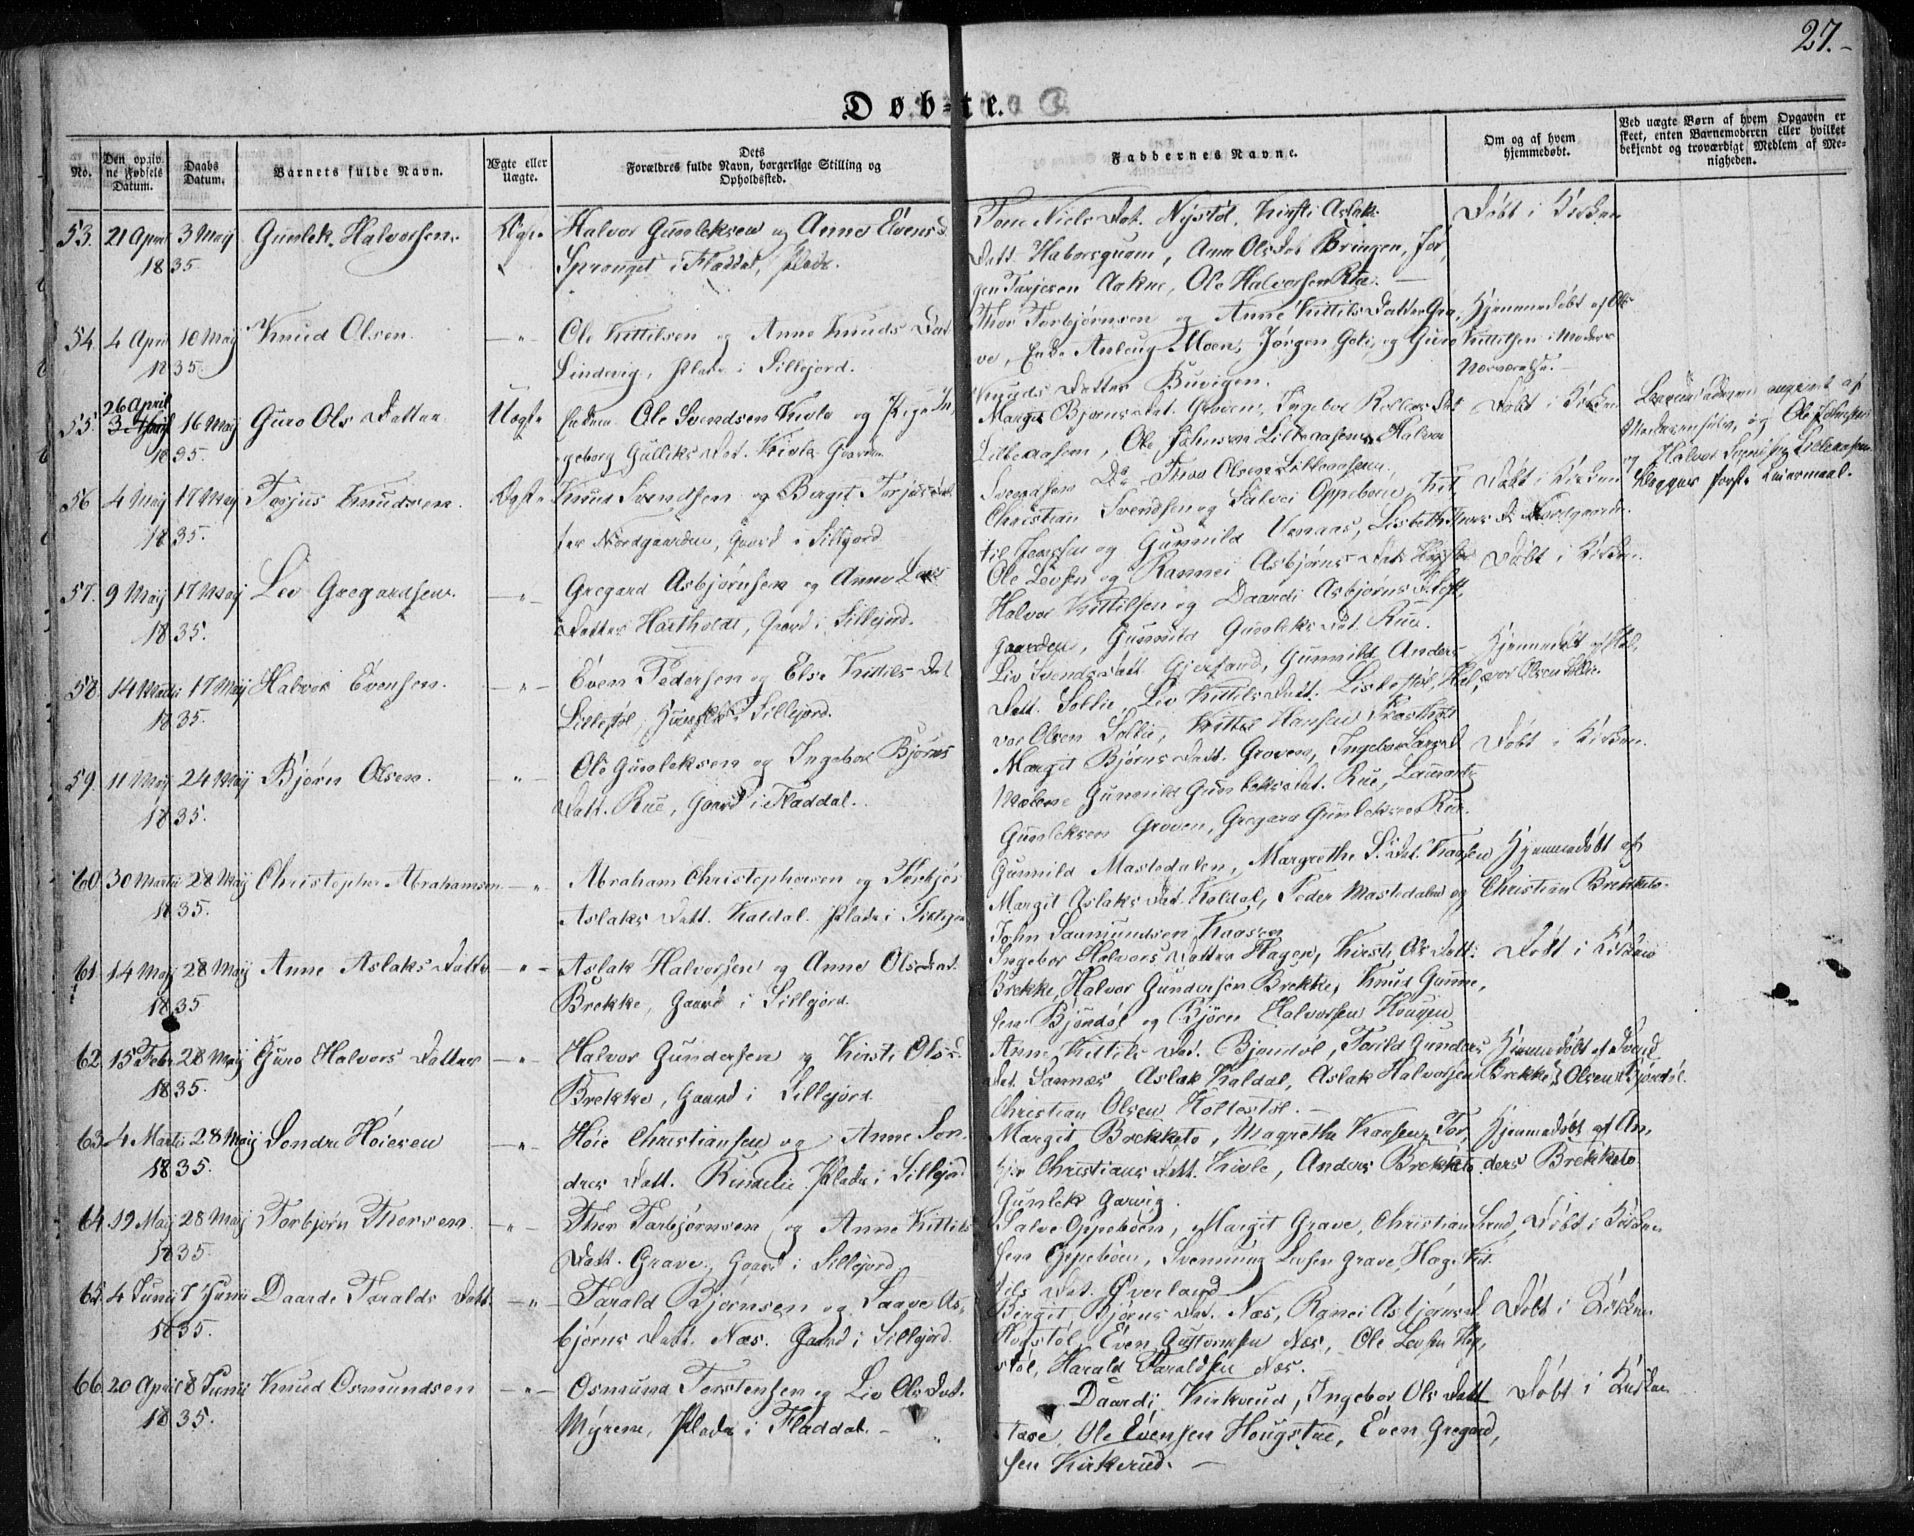 27.
Døb-te.
No.
Den opgiv-
ne Fødsels
Datum.
Daabs
Datum.
Barnets fulde Navn.
Ægte eller
Uægte.
Dets
Forældres fulde Navn, borgerlige Stilling og
Opholdssted.
Faddernes Navne.
Om og af hvem
hjemmedøbt.
Ved uægte Børn af hvem Opgaven er
skeet, enten Barnemoderen eller hvilket
bekjendt og troværdigt Medlem af Me-
nigheden.
53. 21 April 3 Maij Gunlek Halvorsen. Ægte Halvor Gunleksen og Anne Evens d.
1835. Spranget i Fladdal, Plads.
Tone Niels Dat. Nystøl, Kirsti Aslak
Datt. Haborsquam, Anne Olsdat Bringen, Jør
gen Tarjesen Aakne, Ole Halvorsen
Døbt i Kirken
54. 4 April 10 Maij Knud Olsen. -"- Ole Kittilsen og Anne Knuds Dat
1835. Lindevig, Plads i Sillejord.
Thor Torbjørnsen og Anne Kittils Datter Gra,
ve, Moen, Jørgen og Guro
Knuds Datter Buvigen.
Hjemmedøbt af Ole
Kittilsen i Moders
Nærværelse.
55. 26 April 3 April 16 Maij Guro Ols Datter Uægte Ole Svendsen Kivle og Pige In,
1835. geborg Gulliks Dat. Kivle Gaard
Margit Bjørns Dat. Groven, Ingebor Dat
Lilleaasen, Ole Johnsen Lilleaasen, Halvor
Svendsen Do Thor Olsen Lilleaasen.
Døbt i Kirken
Barnefaderen angivet af
Moderen selv, og Ole Johnsen
og Halvor Lilleaasen
Begges første Leiermaal.
56. 4 Maij 17 Maij Torjus Knudsen. Ægte Knud Svendsen og Birgit Torjus Dat
1835. ter Nordgaarden, Gaard i Sillejord
Christian Svendsen og Salvei Oppeboen, Kit
til Jonssen og Gunnild Vraaes, Lisbeth Nordgaarden.
Døbt i Kirken
57. 9 Maij 17 Maij Lev Gregardsen. -"- Gregard Asbjørnsen og Anne Levs
1835. Datter Hartholdt, Gaard i Sillejord.
Ole Levsen og Rannei Asbjørns Dat
Halvor Kittilsen og Daardi Asbjørns Dat
gaarden, Gunnild Gunleks Dat. Rue.
Døbt i Kirken
58. 14 Martii 17 Maij Halvor Evensen. -"- Even Pedersen og Else Kittils Dat
1835. Lillestøl, i Sillejord.
Liv Svends Datt. Gjersund, Gunnild Anders
Datt. Sollie, Liv Kittils Datt. Liskestøl, Hal,
vor Olsen Sollie, Kittil Hansen
Hjemmedøbt af Hal,
vor Olsen Sollie.
59. 11 Maij 24 Maij Bjørn Olsen. -"- Ole Gunleksen og Ingebor Bjørns
1835. Datt. Rue, Gaard i Fladdal.
Margit Bjørns Datt. Groven, Ingebor Lars D
Gunnild Gunleks Dat. Rue, Laurants
Gunleksen Groven, Gregard Gunleksen Rue.
Døbt i Kirken.
60. 30 Martii 28 Maij Christopher Abrahamsen -"- Abraham Christophersen og Torbjør
1835. Aslaks Datt. Kaldal. Plads i Sillejord
Gunnild Mastedalen, Margrethe S. Dat. Kaasen
Margit Aslaks Dat. Kaldal, Peder Mastedalen og
John Saamundsen Kaasen
Hjemmedøbt af
Christian Brekketo.
61. 14 Maij 28 Maij Anne Aslaks Datter -"- Aslak Halvorsen og Anne Ols Dat.
1835 Brekke, Gaard i Sillejord
Ingebor Halvors Datter Hagen, Kirsti Ols Datt:
Brekke, Halvor Gundersen Brekke, Knud Gunne,
sen Bjøndøl og Bjørn Halvorsen Hougen
Døbt i Kirken
62. 15 Febr 28 Maij Guro Halvors Datter -"- Halvor Gundersen og Kirsti Ols d.
1835. Brekke, Gaard i Sillejord
Anne Kittils Dat. Bjøndøl, Torild Gunders
Dat. Sannæs Aslak Kaldal, Aslak Halvorsen Brekke,
Christian Olsen Holtestøl.
Hjemmedøbt af Svend
Olsen Bjøndøl.
63. 4 Martii 28 Maij Sondre Høiesen -"- Høie Christiansen og Anne Son,
1835. dres Datt. Rindelie Plads i Sillejord
Margit Brekketo, Magrethe Kaasen, Tor,
bjør Christians Datt. Kivle, Anders Brekketo
Gunlek Garvig.
Hjemmedøbt af An,
ders Brekketo
64. 19 Maij 28 Maij Torbjørn Thorsen. -"- Thor Torbjørnsen og Anne Kittils
1835. Datt. Grave, Gaard i Sillejord
Salve Oppeboen, Margit Grave, Christian Svend,
sen Oppeboen, Svenning Levsen Grave, Hage Kit
tils Dat. Øverland
Døbt i Kirken
65. 4 Junii 7 Junii Daarde Taralds Datt. -"- Tarald Bjørnsen og Saave As,
1835. bjørns Datt. Næs. Gaard i Sillejord
Birgit Bjørns Dat. Næs, Ranei Asbjørnsd
Høgstøl, Even Guttormsen Næs, Ole Levsen Høg,
støl, Harald Taraldsen Næs.
Døbt i Kirken
66. 20 April 8 Junii Knud Osmundsen -"- Osmund Torstensen og Liv Ols Dat.
1835. Myrene, Plads i Fladdal.
Daardi Kirkerud, Ingebor Ols Datt
Tase, Ole Evensen Hougstue, Even Gregard,
sen Kirkerud.
Døbt i Kirken